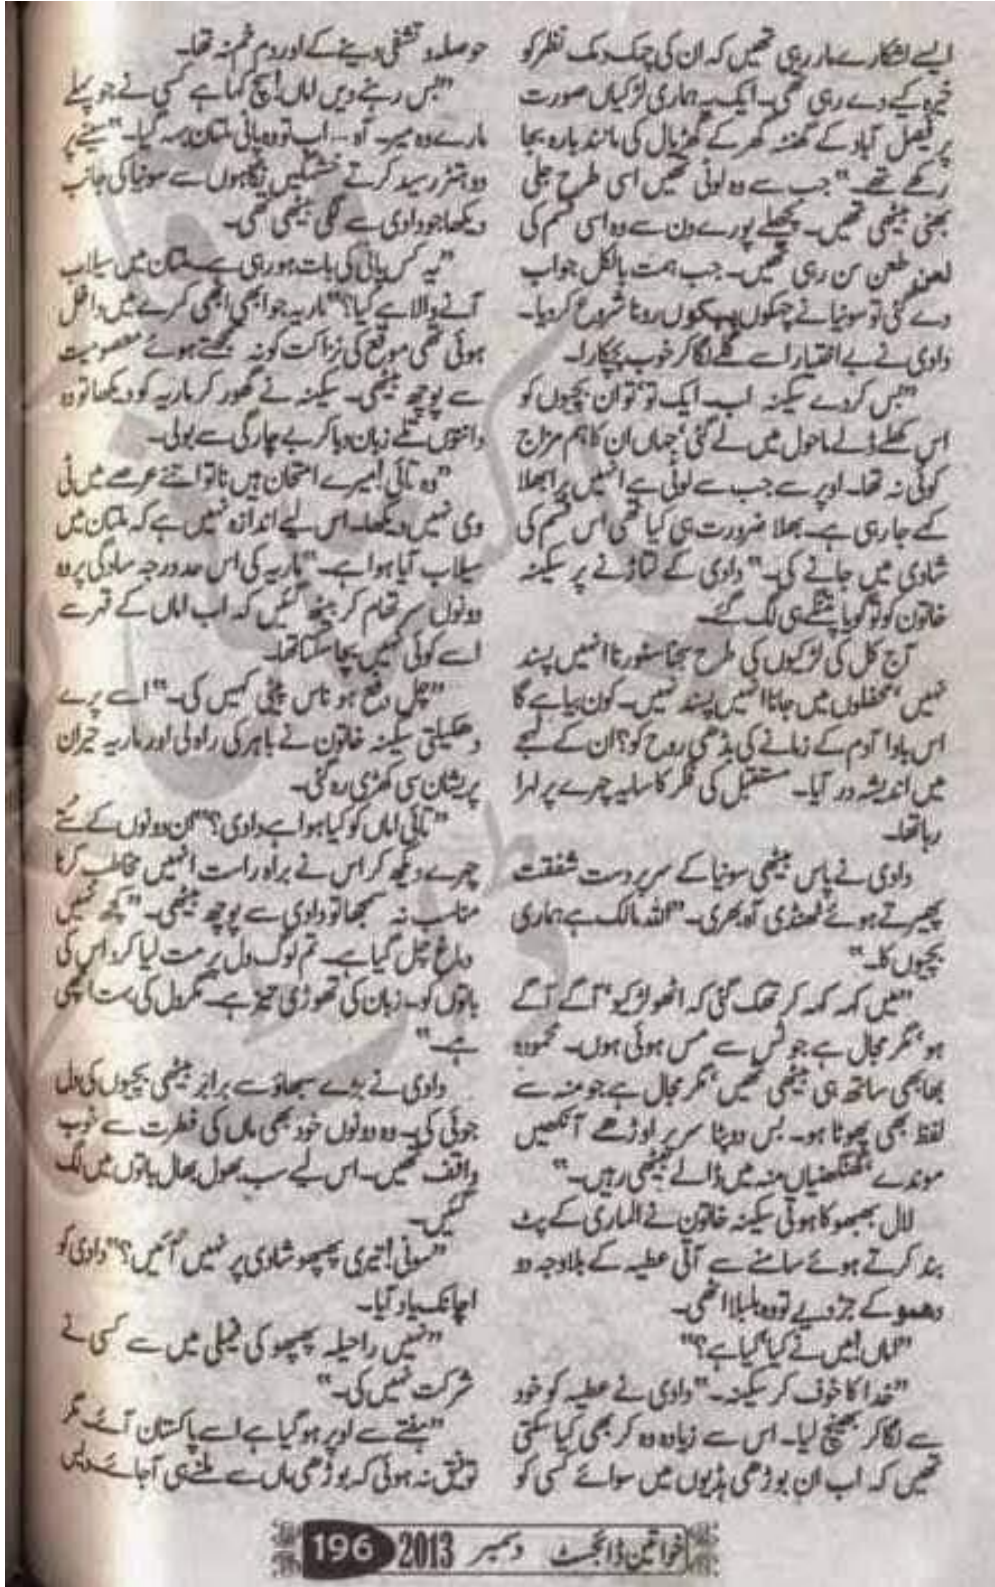 ایسے لشکارے مار رہی تھیں کہ ان کی چمک دمک نظر کو
خیرہ کیے دے رہی تھی۔ ایک یہ ہماری لڑکیاں صورت
پر فیصل آباد کے گھنٹہ گھر کے گھڑیال کی مانند بارہ بجا
رکھے تھے۔" جب سے وہ لوٹی تھیں اسی طرح جلی
بھنی بیٹھی تھیں۔ پچھلے پورے دن سے وہ اسی قسم کی
لعن طعن سن رہی تھیں۔ جب ہمت بالکل جواب
دے گئی تو سونیا نے چہکوں پہکوں رونا شروع کر دیا۔
دادی نے بے اختیار اسے گلے لگا کر خوب پچکارا۔
"بس کر دے سکینہ اب۔ ایک تو' تو ان بچیوں کو
اس کھلے ڈلے ماحول میں لے گئی' جہاں ان کا ہم مزاج
کوئی نہ تھا۔ اوپر سے جب سے لوٹی ہے انہیں برا بھلا
کہے جا رہی ہے۔ بھلا ضرورت ہی کیا تھی اس قسم کی
شادی میں جانے کی۔" دادی کے لتاڑنے پر سکینہ
خاتون کو تو گویا پتنگے ہی لگ گئے۔
آج کل کی لڑکیوں کی طرح سجنا سنورنا انہیں پسند
نہیں' محفلوں میں جانا انہیں پسند نہیں۔ کون بیاہے گا
اس باوا آدم کے زمانے کی بڈھی روح کو؟ ان کے لہجے
میں اندیشہ در آیا۔ مستقبل کی فکر کا سایہ چہرے پر لہرا
رہا تھا۔
دادی نے پاس بیٹھی سونیا کے سر پر دست شفقت
پھیرتے ہوئے ٹھنڈی آہ بھری۔ "اللہ مالک ہے ہماری
بچیوں کا۔"
"میں کہہ کہہ کر تھک گئی کہ اٹھو لڑکیو' آگے آگے
ہو' مگر مجال ہے جو ٹس سے مس ہوئی ہوں۔ محمودہ
بھابھی ساتھ ہی بیٹھی تھیں' مگر مجال ہے جو منہ سے
لفظ بھی پھوٹا ہو۔ بس دوپٹا سر پر اوڑھے آنکھیں
موندے' گھنگھنیاں منہ میں ڈالے بیٹھی رہیں۔"
لال بھبھوکا ہوتی سکینہ خاتون نے الماری کے پٹ
بند کرتے ہوئے سامنے سے آتی عطیہ کے بلاوجہ دو
دھموکے جڑ دیے تو وہ بلبلا اٹھی۔
"اماں! میں نے کیا' کیا ہے؟"
"خدا کا خوف کر سکینہ۔" دادی نے عطیہ کو خود
سے لگا کر بھینچ لیا۔ اس سے زیادہ وہ کر بھی کیا سکتی
تھیں کہ اب ان بوڑھی ہڈیوں میں سوائے کسی کو
حوصلہ و تشفی دینے کے اور دم خم نہ تھا۔
"بس رہنے دیں اماں! سچ کہا ہے کسی نے جو پہلے
مارے وہ میر۔ آہ... اب تو وہ پانی ملتان بہہ گیا۔" سینے پر
دو ہتڑ رسید کرتے خشمگیں نگاہوں سے سونیا کی جانب
دیکھا جو دادی سے لگی بیٹھی تھی۔
"یہ کس پانی کی بات ہو رہی ہے۔ ملتان میں سیلاب
آنے والا ہے کیا؟" ماریہ جو ابھی ابھی کمرے میں داخل
ہوئی تھی موقع کی نزاکت کو نہ سمجھتے ہوئے معصومیت
سے پوچھ بیٹھی۔ سکینہ نے گھور کر ماریہ کو دیکھا تو وہ
دانتوں تلے زبان دبا کر بے چارگی سے بولی۔
"وہ تائی! میرے امتحان ہیں نا تو اتنے عرصے میں ٹی
وی نہیں دیکھا۔ اس لیے اندازہ نہیں ہے کہ ملتان میں
سیلاب آیا ہوا ہے۔" ماریہ کی اس حد درجہ سادگی پر وہ
دونوں سر تھام کر بیٹھ گئیں کہ اب اماں کے قہر سے
اسے کوئی نہیں بچا سکتا تھا۔
"چل دفع ہو ناس پیٹی کہیں کی۔" اسے پرے
دھکیلتی سکینہ خاتون نے باہر کی راہ لی اور ماریہ حیران
پریشان سی کھڑی رہ گئی۔
"تائی اماں کو کیا ہوا ہے دادی؟" ان دونوں کے ستے
چہرے دیکھ کر اس نے براہ راست انہیں مخاطب کرنا
مناسب نہ سمجھا تو دادی سے پوچھ بیٹھی۔ "کچھ نہیں
دماغ چل گیا ہے۔ تم لوگ دل پر مت لیا کرو اس کی
باتوں کو۔ زبان کی تھوڑی تیز ہے۔ مگر دل کی بہت اچھی
ہے۔"
دادی نے بڑے سبھاؤ سے برابر بیٹھی بچیوں کی دل
جوئی کی۔ وہ دونوں خود بھی ماں کی فطرت سے خوب
واقف تھیں۔ اس لیے سب بھول بھال باتوں میں لگ
گئیں۔
"سونی! تیری پھپھو شادی پر نہیں آئیں؟" دادی کو
اچانک یاد آیا۔
"نہیں راحیلہ پھپھو کی فیملی میں سے کسی نے
شرکت نہیں کی۔"
"ہفتے سے اوپر ہو گیا ہے اسے پاکستان آئے مگر
توفیق نہ ہوئی کہ بوڑھی ماں سے ملنے ہی آجائے دیس
خواتین ڈائجسٹ دسمبر 2013 196